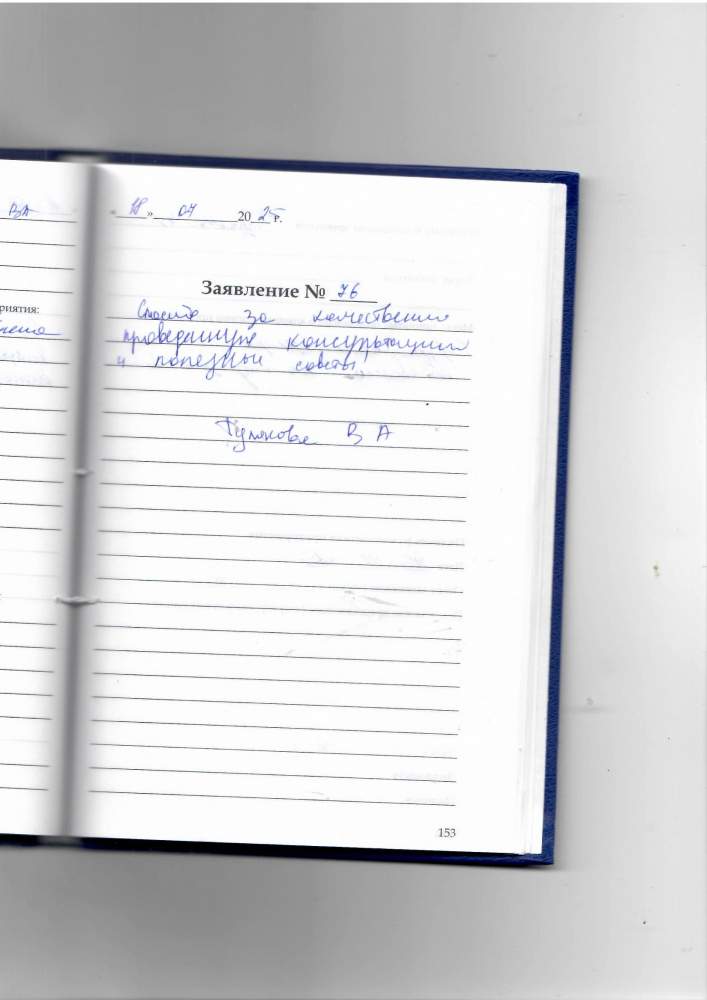 ВА
«18» 04 2025 г.
Заявление № 76
риятия:
Спасибо за качественно
проведенную консультацию
и полезные советы.
Тулякова В А
153